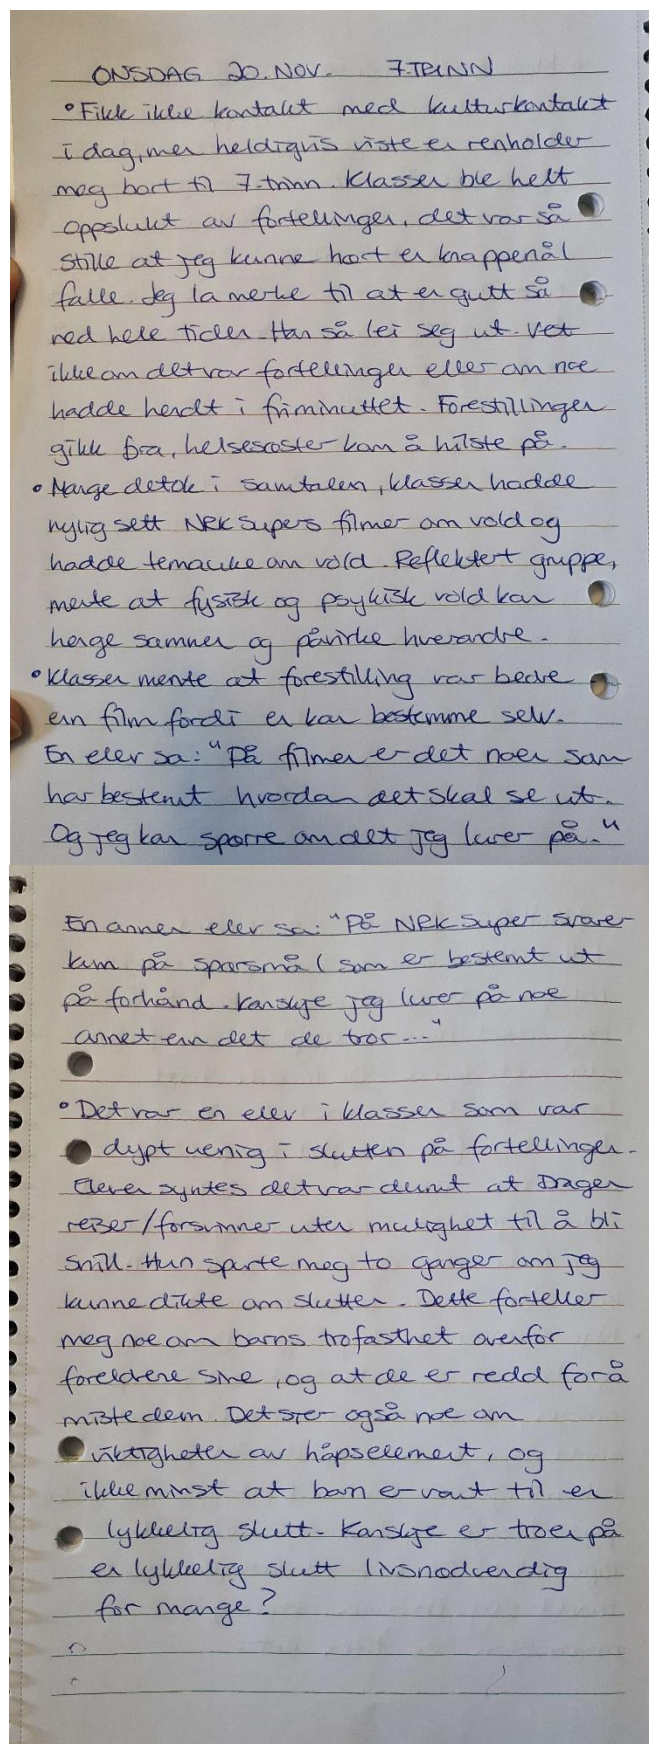 ONSDAG 20. NOV. 7. TRINN
• Fikk ikke kontakt med kulturkontakt
i dag, men heldigvis viste en renholder
meg bort til 7. trinn. Klassen ble helt
oppslukt av fortellingen, det var så
stille at jeg kunne hørt en knappenål
falle. Jeg la merke til at en gutt så
ned hele tiden. Han så lei seg ut. Vet
ikke om det var fortellingen eller om noe
hadde hendt i friminuttet. Forestillingen
gikk bra, helsesøster kom å hilste på.
• Mange deltok i samtalen, klassen hadde
nylig sett NRK Supers filmer om vold og
hadde temauke om vold. Reflektert gruppe,
mente at fysisk og psykisk vold kan
henge sammen og påvirke hverandre.
• Klassen mente at forestilling var bedre
enn film fordi en kan bestemme selv.
En elev sa: "På filmen er det noen som
har bestemt hvordan det skal se ut.
Og jeg kan spørre om det jeg lurer på."
En annen elev sa: "På NRK Super svarer
kun på spørsmål som er bestemt ut
på forhånd. Kanskje jeg lurer på noe
annet enn det de tror..."
• Det var en elev i klassen som var
dypt uenig i slutten på fortellingen.
Eleven syntes det var dumt at Dragen
reiser/forsvinner uten mulighet til å bli
snill. Hun spurte meg to ganger om jeg
kunne dikte om slutten. Dette forteller
meg noe om barns trofasthet ovenfor
foreldrene sine, og at de er redd for å
miste dem. Det sier også noe om
viktigheten av håpselement, og
ikke minst at barn er vant til en
lykkelig slutt. Kanskje er troen på
en lykkelig slutt livsnødvendig
for mange?